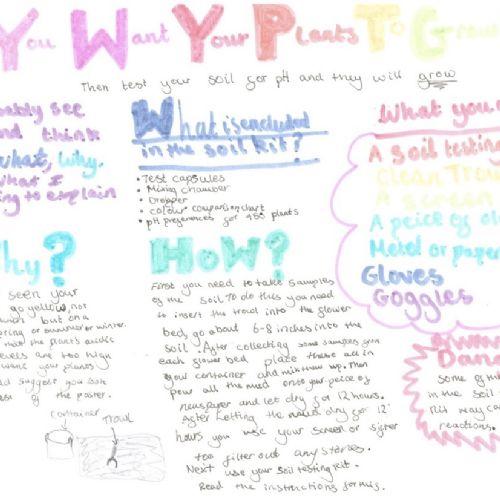 You Want Your Plants To Grow
Then test your soil for pH and they will grow
see
and think
what, why,
what I
to explain
What is encluded
in the soil kit?
• Test capsules
• Mixing chamber
• Dropper
• colour comparison chart
• pH preferences for 450 plants
What you
A soil testing
Clean Trow
A screen
A peice of
Metal or paper
Gloves
Goggles
Why?
seen your
go yellow, not
but on a
spring or summer or winter.
that the plant's acidic
levels are too high
want your plants
suggest you look
rest of the poster.
container
Trowl
How?
First you need to take samples
of the soil. To do this you need
to insert the trowl into the flower
bed go about 6-8 inches into the
soil. After collecting some samples from
each flower bed place these all in
your container and mix them up. Then
pour all the mud onto your peice of
newspaper and let dry for 12 hours.
After letting the mud dry for 12
hours you use your screen or sifter
too filter out any stones.
Next use your soil testing kit.
Read the instructions for
Dan
Some of
in the soil
kit may
reactions.